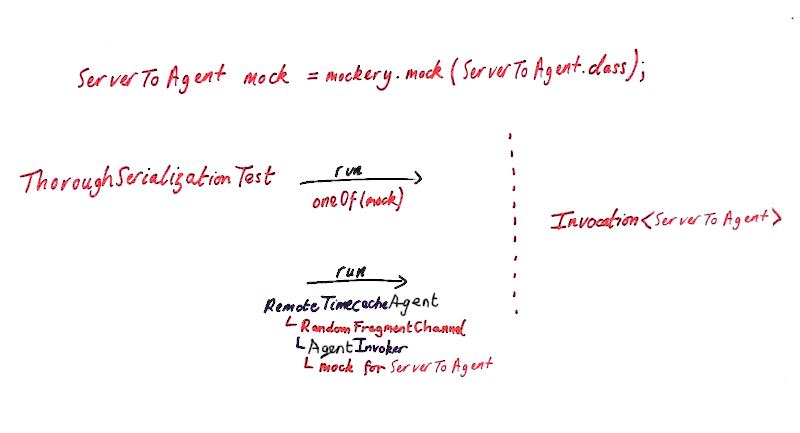 ServerToAgent mock = mockery.mock(ServerToAgent.class);
ThoroughSerializationTest
run
oneOf(mock)
Invocation<ServerToAgent>
run
RemoteTimecacheAgent
RandomFragmentChannel
AgentInvoker
mock for ServerToAgent